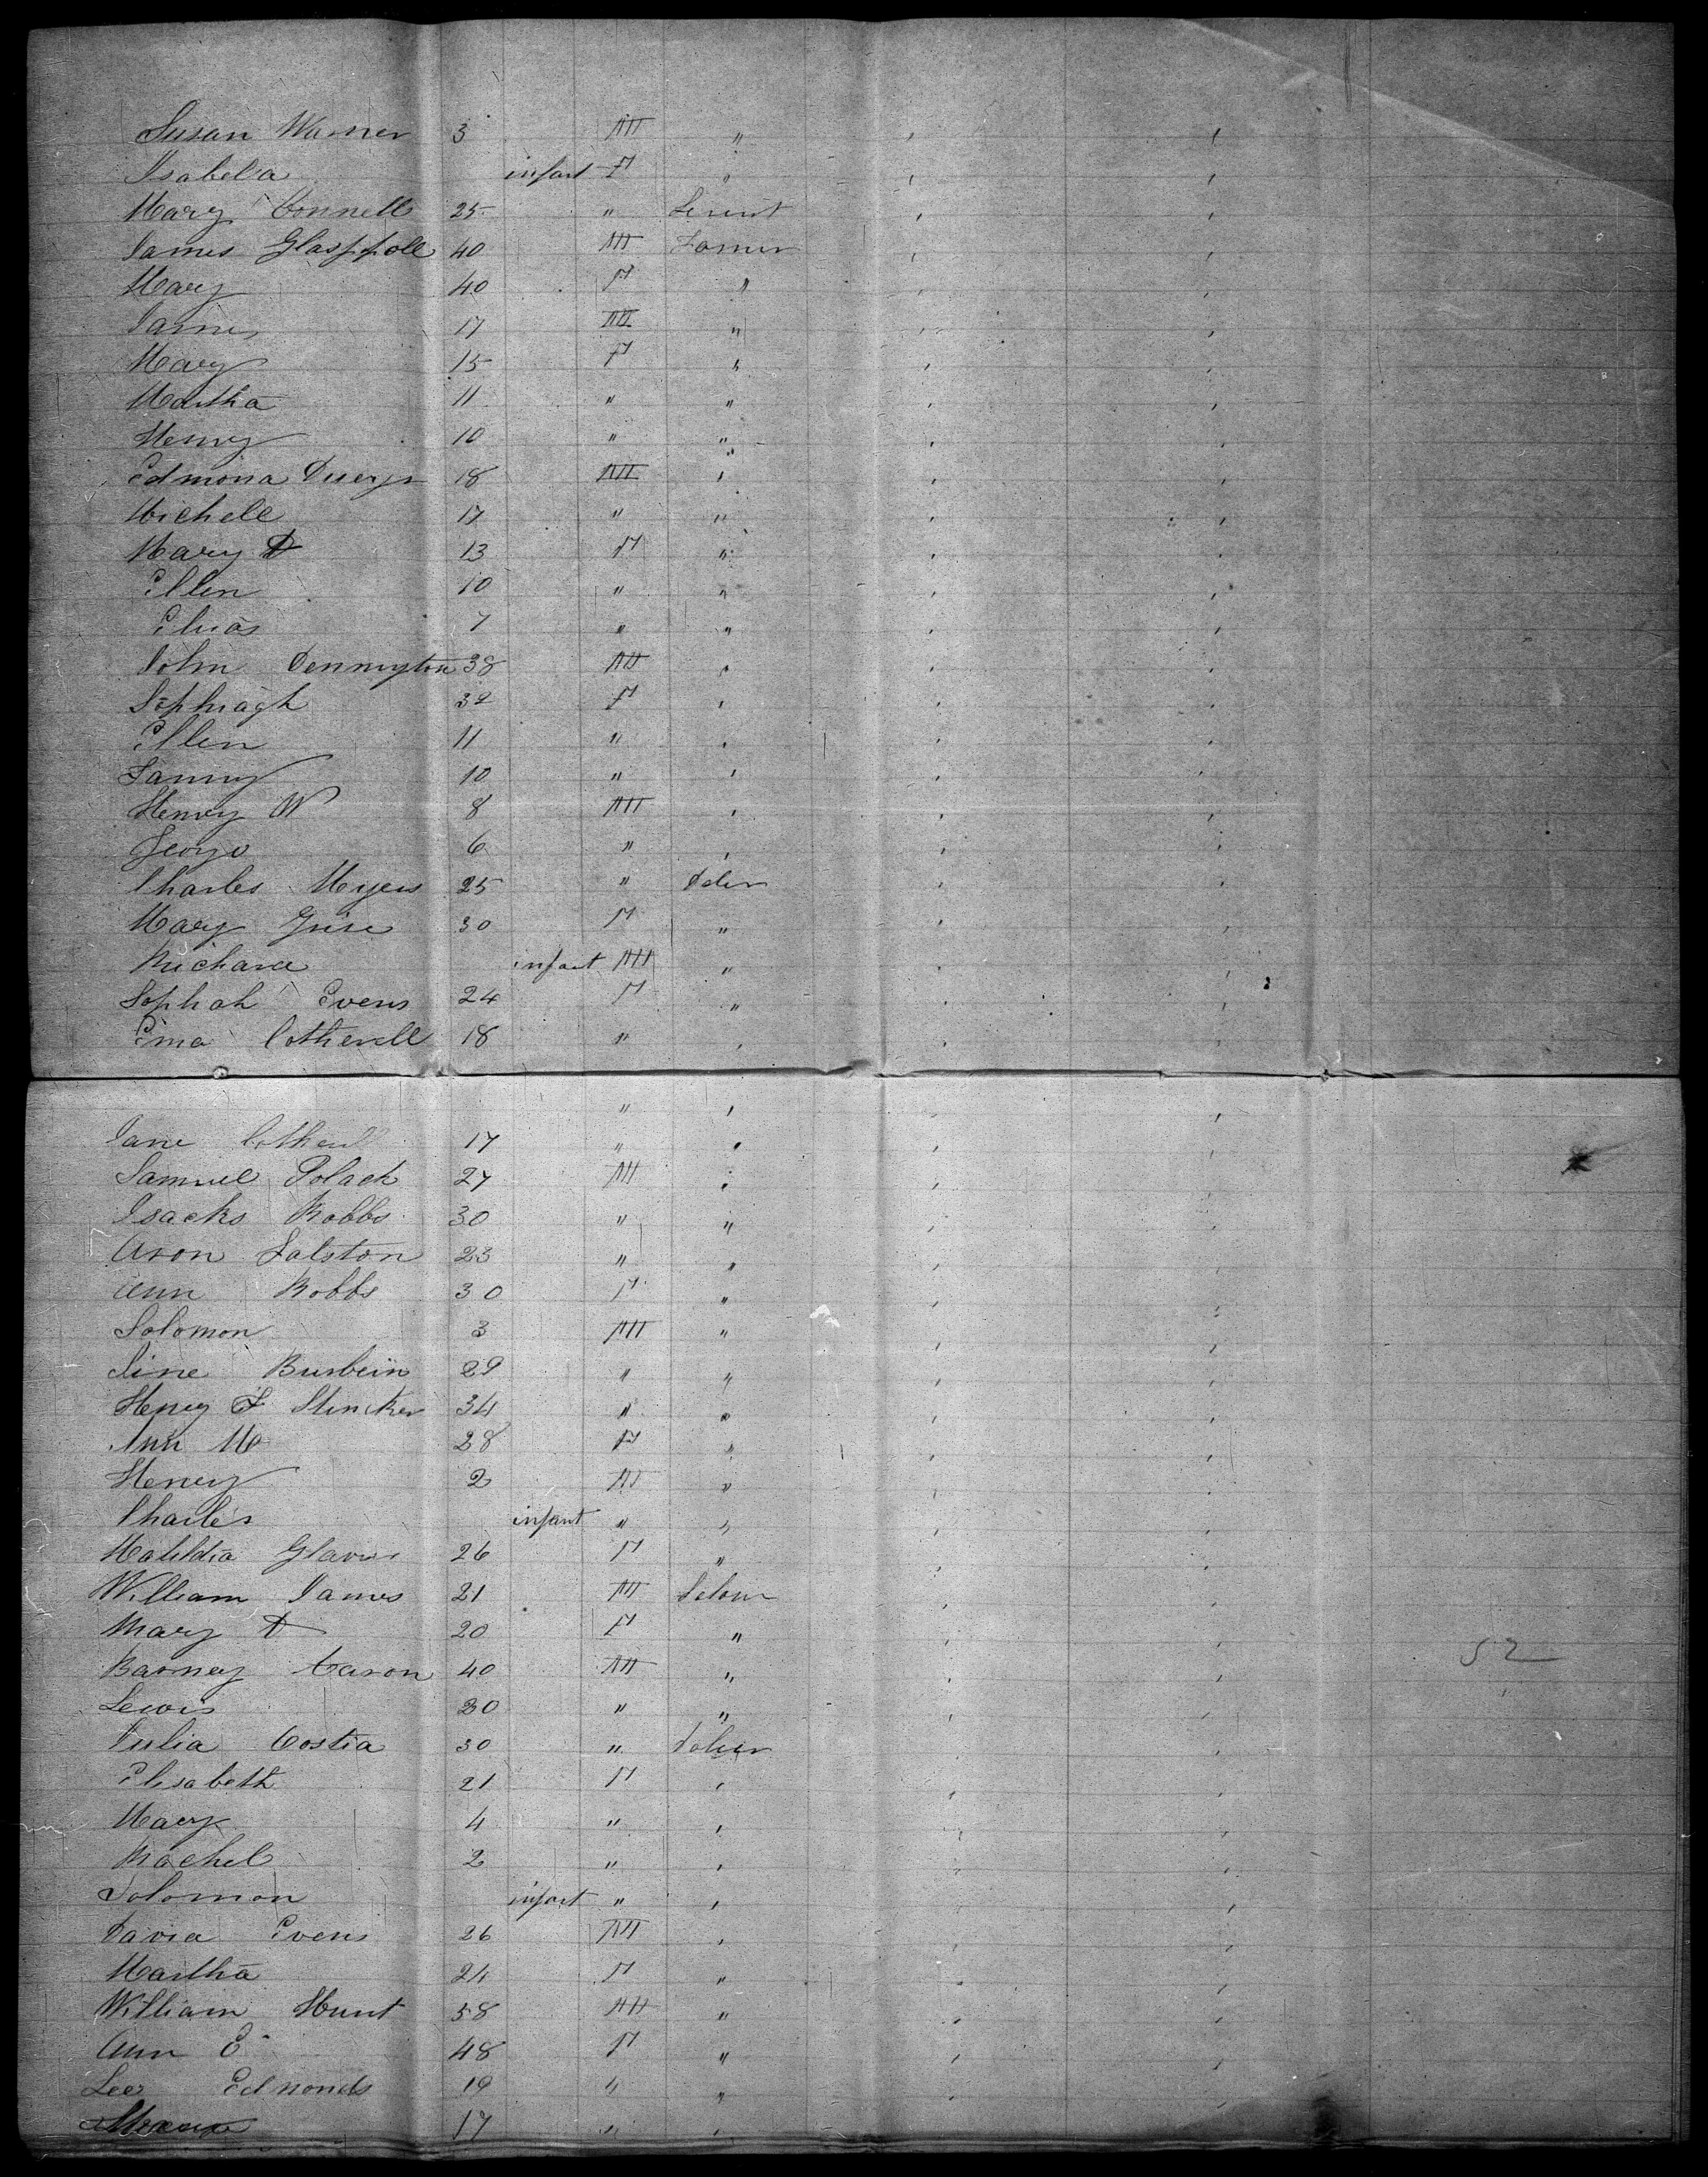 Susan Warner 3 M " , ,
Isabela infant F " , ,
Mary Connell 25 " , ,
James Glasspole 40 M Farmer , ,
Mary 40 F " , ,
James 17 M " , ,
Mary 15 F " , ,
Martha 11 " " , ,
Henry 10 " " , ,
Edmond 18 M " , ,
Michell 17 " " , ,
Mary D 13 F " , ,
Ellen 10 " " , ,
Elias 7 " " , ,
John Dennington 38 M " , ,
Sophiagh 32 F " , ,
Ellen 11 " " , ,
Fanny 10 " " , ,
Henry W 8 M " , ,
George 6 " " , ,
Charles Meyers 25 " , ,
Mary 30 F " , ,
Richard infant M " , ,
Sophah Evens 24 F " , ,
Ema Cotherell 18 " " , ,
" " , ,
Jane Cotherell 17 " " , ,
Samuel Polack 27 M " , ,
Isacks Robbs 30 " " , ,
Aron Salston 23 " " , ,
Ann Robbs 30 F " , ,
Solomon 3 M " , ,
29 " " , ,
Henry F 34 " " , ,
Ann M 28 F " , ,
Henery 2 M " , ,
Charles infant " " , ,
Matildia 26 F " , ,
William James 21 M , ,
Mary D 20 F " , ,
Barney Caron 40 M " , , 52
Lewis 30 " " , ,
Julia Costia 30 " , ,
Elisabeth 21 F " , ,
Mary 4 " " , ,
Rachel 2 " " , ,
Solomon infant " " , ,
David Evens 26 M " , ,
Martha 24 F " , ,
William Hunt 58 M " , ,
Ann E 48 F " , ,
Lee Edmonds 19 " " , ,
17 " "